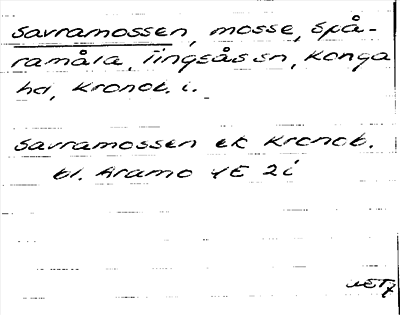 Savramossen, mosse, Spå-
ramåla, Tingsås sn, Konga
hd, Kronob. l.
Savramossen ek Kronob.
bl. Aramo 4E 2i